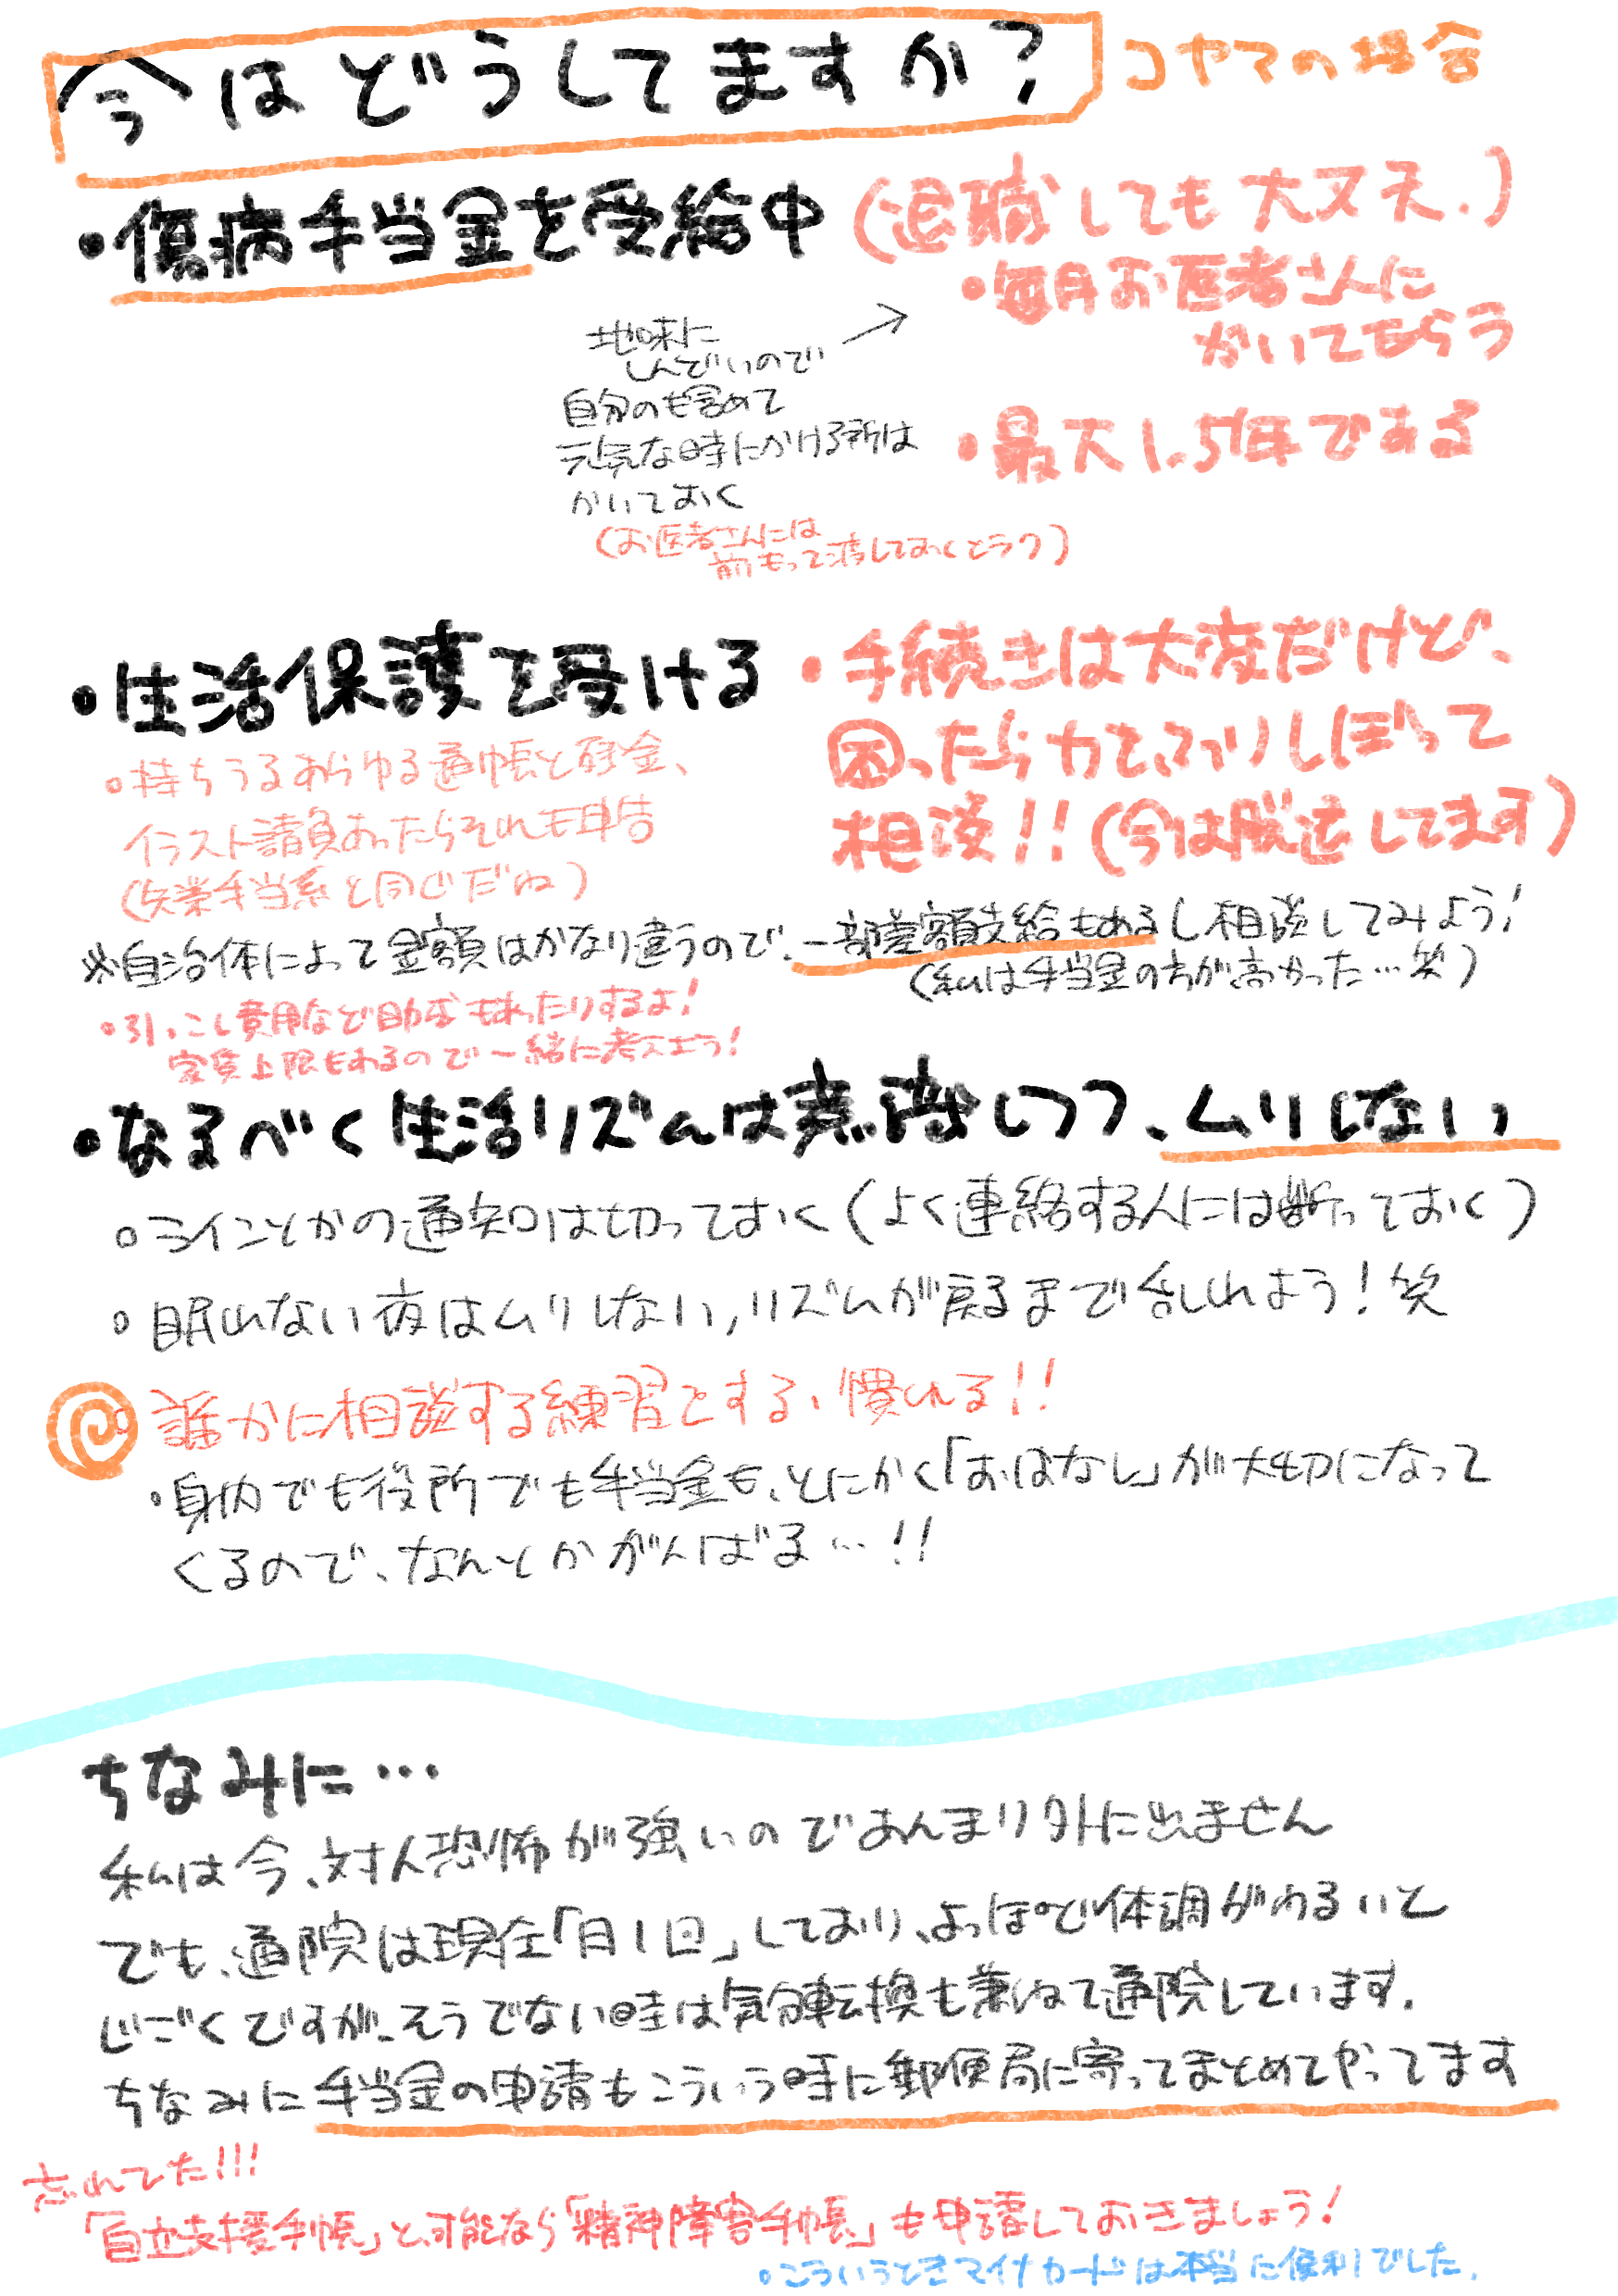 今はどうしてますか?
コヤマの場合
・傷病手当金を受給中
(退職しても大丈夫.)
・毎月お医者さんに
かいてもらう
・最大1.5年である
地味に
しんどいので
自分のも含めて
元気な時にかける所は
かいておく
(お医者さんには
前もって渡しておくとラク)
・生活保護を受ける
・手続きは大変だけど、
困ったら力をふりしぼって
相談!!(今は脱退してます)
・持ちうるあらゆる通帳と貯金、
イラスト請負あったらそれも申告
(失業手当系と同じだね)
※自治体によって金額はかなり違うので、一部差額支給もあるし相談してみよう!
(私は手当金の方が高かった…笑)
・引っこし費用など助成もあったりするよ!
家賃上限もあるので一緒に考えよう!
・なるべく生活リズムは意識しつつ、ムリしない
・ラインとかの通知は切っておく(よく連絡する人には断っておく)
・眠れない夜はムリしない,リズムが戻るまで乱れよう!笑
・誰かに相談する練習をする、慣れる!!
・身内でも役所でも手当金も、とにかく「おはなし」が大切になって
くるので、なんとかがんばる…!!
ちなみに…
私は今、対人恐怖が強いのであんまり外に出ません
でも、通院は現在「月1回」しており、よっぽど体調がわるいと
じごくですが、そうでない時は気分転換も兼ねて通院しています.
ちなみに手当金の申請もこういう時に郵便局に寄ってまとめてやってます
忘れてた!!!
「自立支援手帳」と、可能なら「精神障害手帳」も申請しておきましょう!
・こういうときマイナカードは本当に便利でした.